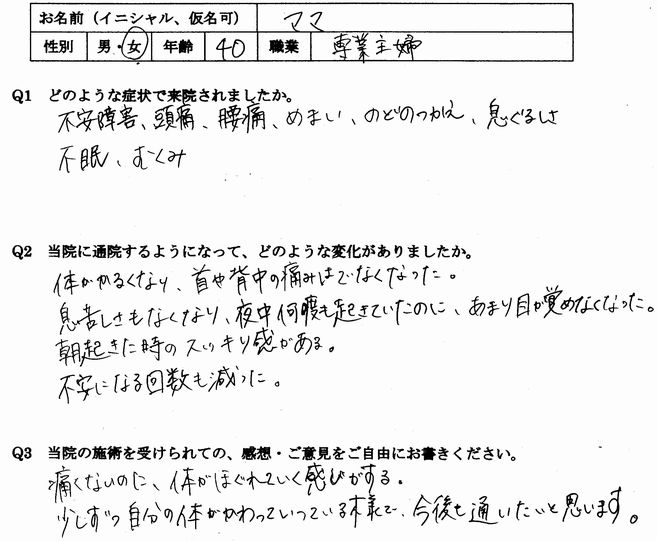 お名前（イニシャル、仮名可） ママ
性別 男・女 年齢 40 職業 専業主婦
Q1 どのような症状で来院されましたか。
不安障害、頭痛、腰痛、めまい、のどのつかえ、息ぐるしさ
不眠、むくみ
Q2 当院に通院するようになって、どのような変化がありましたか。
体がかるくなり、首や背中の痛みはでなくなった。
息苦しさもなくなり、夜中何度も起きていたのに、あまり目が覚めなくなった。
朝起きた時のスッキリ感がある。
不安になる回数も減った。
Q3 当院の施術を受けられての、感想・ご意見をご自由にお書きください。
痛くないのに、体がほぐれていく感じがする。
少しずつ自分の体がかわっていっている様で、今後も通いたいと思います。